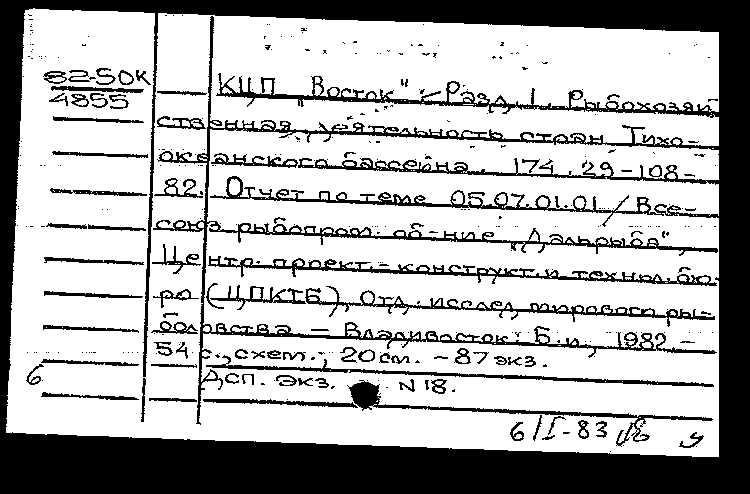 82-50к
4855
КЦП „Восток" - Разд. 1. Рыбохозяй
ственная деятельность стран Тихо-
океанского бассейна. 174.29-108-
82. Отчет по теме 05.07.01.01 / Все-
союз. рыбопром. об-ние „Дальрыба",
Центр. проект.-конструкт. и технол. бю-
ро (ЦПКТБ), Отд. исслед. мирового ры-
боловства. - Владивосток: Б.и., 1982. -
54 с., схем.; 20 см. - 87 экз.
6 Дсп. экз. N 18.
6/I-83